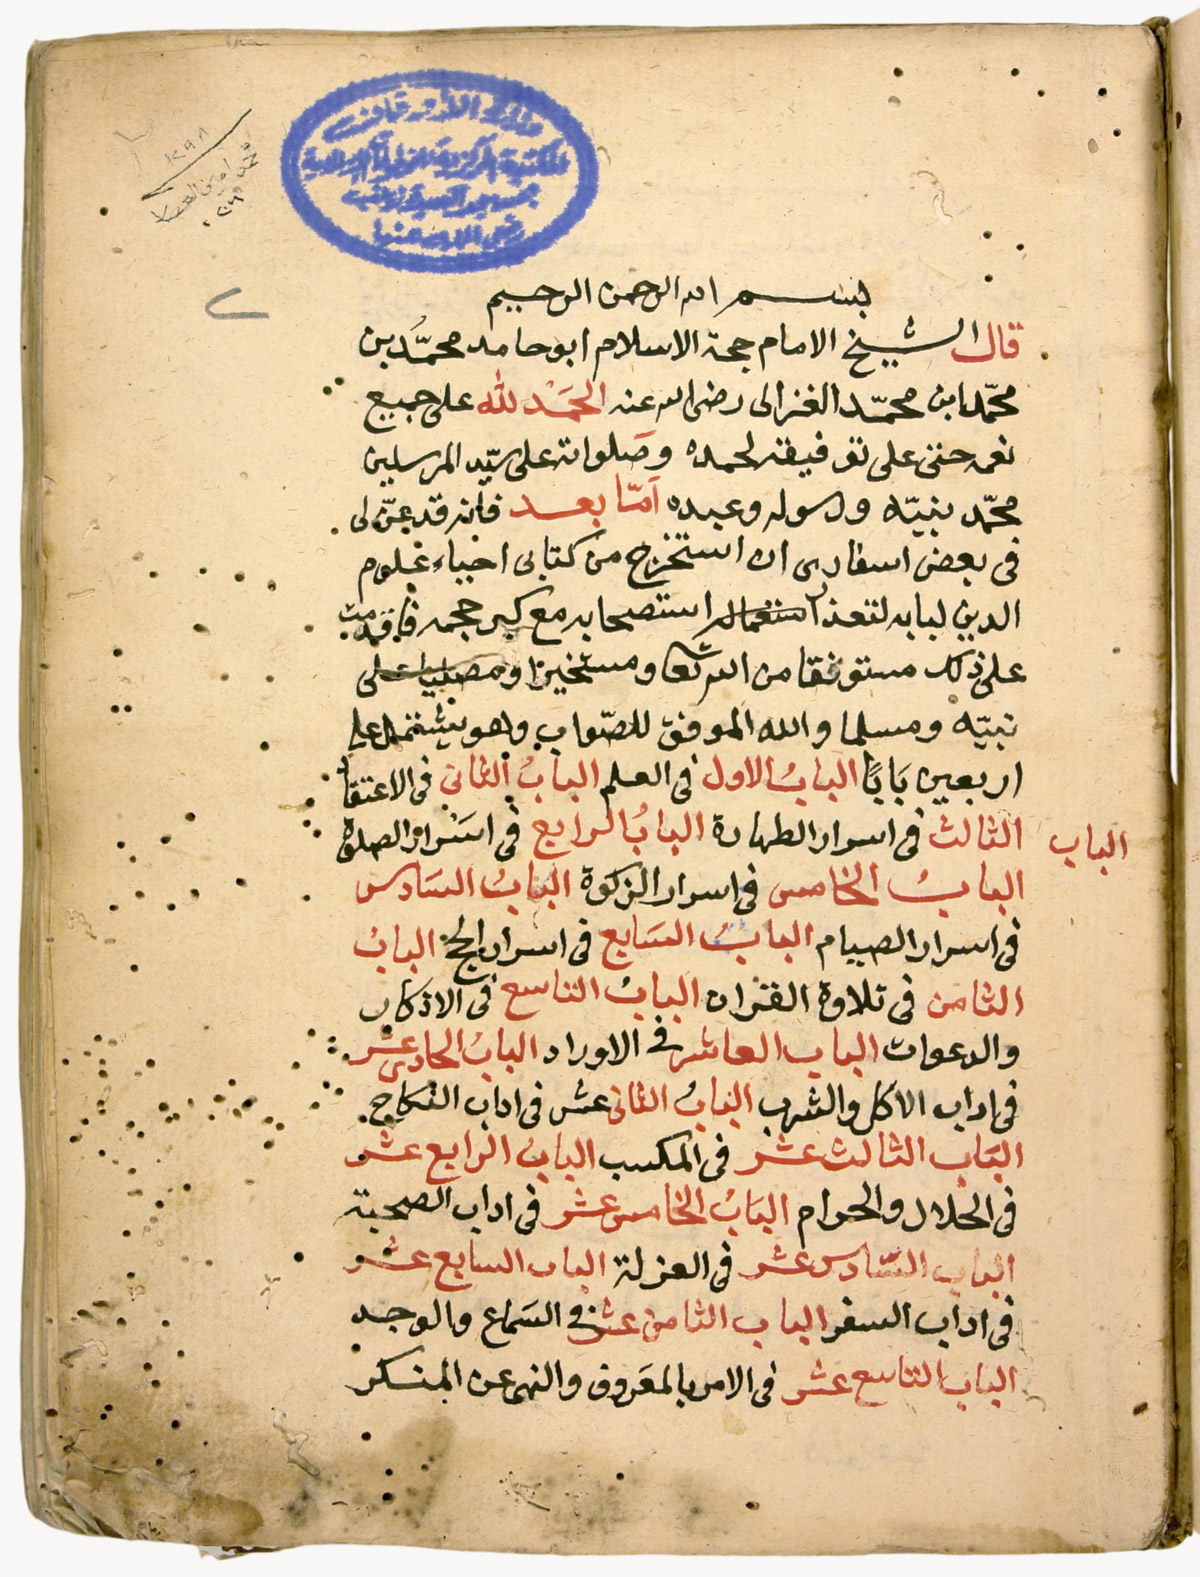 وزارة الأوقاف
المكتبة المركزية للمخطوطات الإسلامية
بمسجد السيدة زينب
رضي الله عنها
١٣٩٨
بسم الله الرحمن الرحيم
قال الشيخ الامام حجة الاسلام ابو حامد محمّد بن
محمّد ابن محمّد الغزالى رضى الله عنه الحَمْد لله على جميع
نعمه حتى على توفيقه لحمده وصَلواته على سيّد المرسلين
محمّد نبيّه ورسوله وعبده اَمّا بعد فانه قد عنّ لى
فى بعض اسفارى ان استخرج من كتابى احياء علوم
الدين لبابه لتعذر استعماله استصحابه مع كبر حجمه فاقدمت
على ذلك مستوفقا من الله تعا ومستخيرا ومصليا على
نبيّه ومسلما والله الموفق للصّواب وهو يشتمل على
اربعين بَابًا البابُ الاول فى العلم البابُ الثانى فى الاعتقاد
الباب الثالث فى اسرار الطهارة البابُ الرابع فى اسْرار الصلوة
البابُ الخامس فى اسرار الزكوة البابُ السَادس
فى اسرار الصيام البابُ السَابع فى اسرار الحج البابُ
الثامن فى تلاوة القران البابُ التاسع فى الاذكار
والدعوات الباب العاشر فى الاوراد البابُ الحادى عشر
فى اداب الاكل والشرب البابُ الثانى عشر فى اداب النكاح
البَاب الثالث عشر فى المكسب البابُ الرابع عشر
فى الحلال والحرام البَابُ الخامس عشر فى اداب الصحبة
الباب السّادس عشر فى العزلة الباب السابع عشر
فى اداب السفر الباب الثامن عشر فى السَماع والوجد
الباب التاسع عشر فى الامر بالمعَروف والنهى عن المنكر